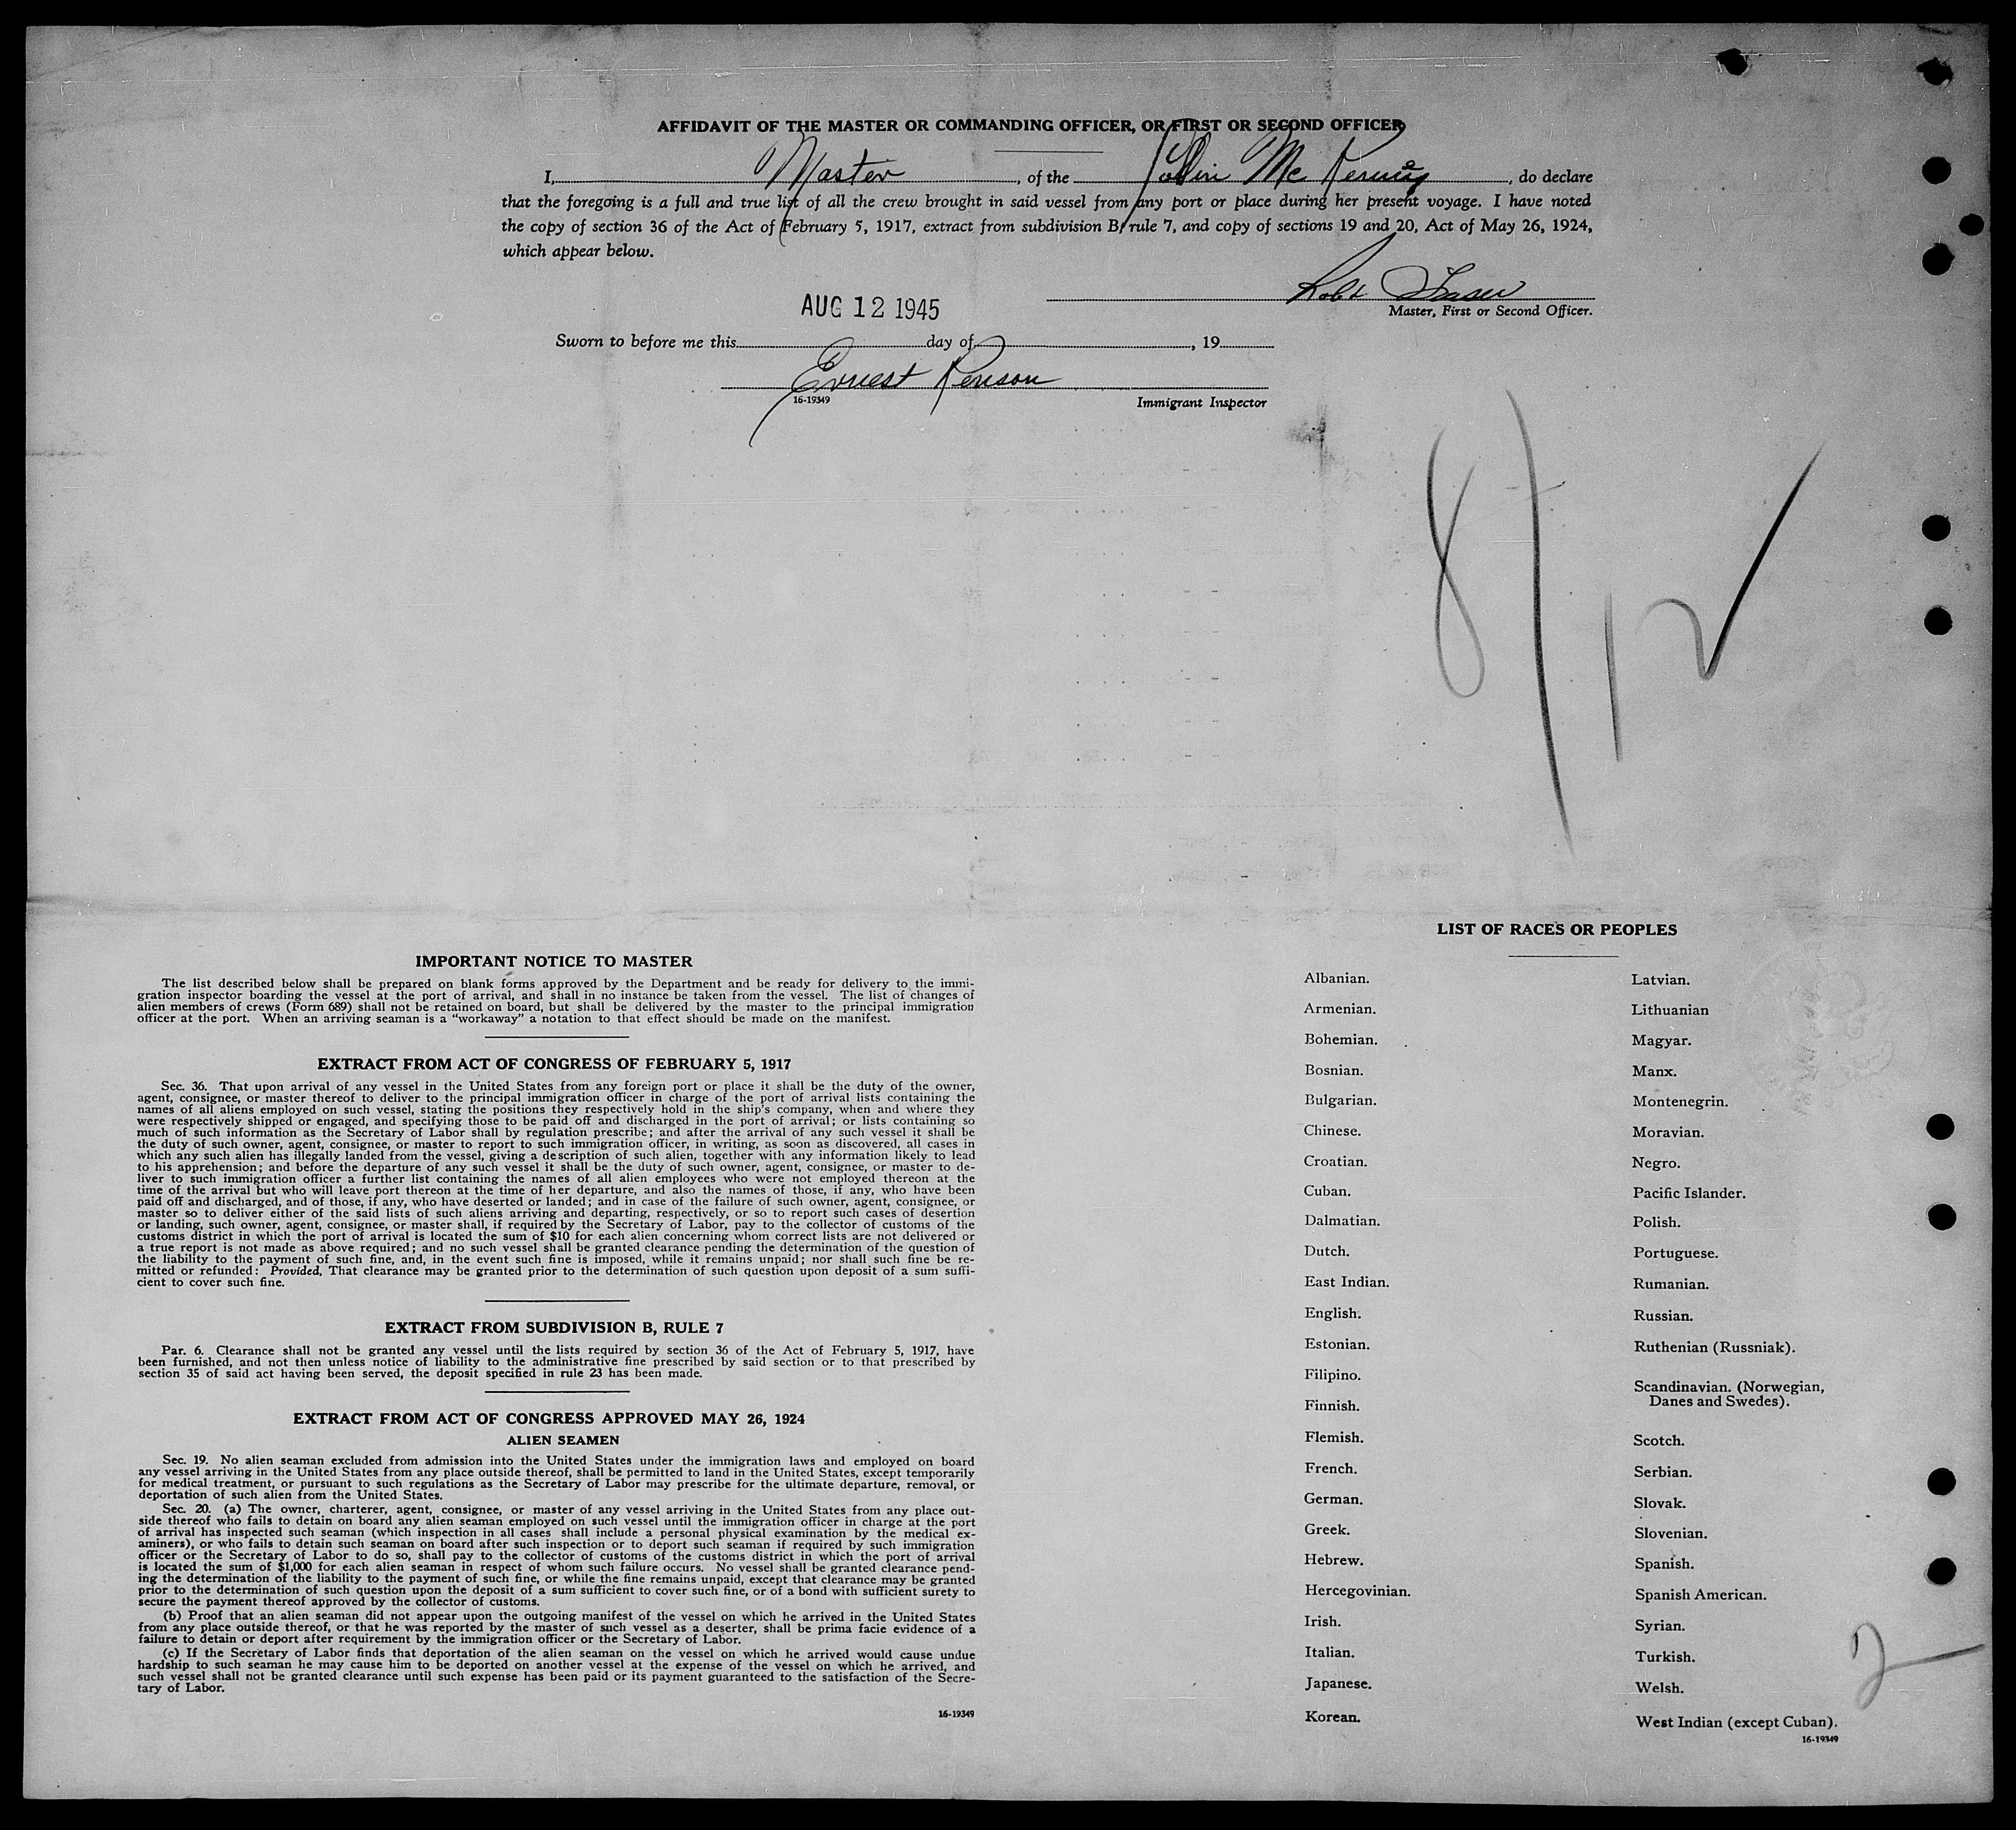 AFFIDAVIT OF THE MASTER OR COMMANDING OFFICER, OR FIRST OR SECOND OFFICER
I, Master, of the John Mc, do declare
that the foregoing is a full and true list of all the crew brought in said vessel from any port or place during her present voyage. I have noted
the copy of section 36 of the Act of February 5, 1917, extract from subdivision B, rule 7, and copy of sections 19 and 20, Act of May 26, 1924,
which appear below.
Robt Fraser
AUG 12 1945
Master, First or Second Officer.
Sworn to before me this day of , 19
Ernest
16-19349 Immigrant Inspector
8/12
IMPORTANT NOTICE TO MASTER
The list described below shall be prepared on blank forms approved by the Department and be ready for delivery to the immi-
gration inspector boarding the vessel at the port of arrival, and shall in no instance be taken from the vessel. The list of changes of
alien members of crews (Form 689) shall not be retained on board, but shall be delivered by the master to the principal immigration
officer at the port. When an arriving seaman is a "workaway" a notation to that effect should be made on the manifest.
EXTRACT FROM ACT OF CONGRESS OF FEBRUARY 5, 1917
Sec. 36. That upon arrival of any vessel in the United States from any foreign port or place it shall be the duty of the owner,
agent, consignee, or master thereof to deliver to the principal immigration officer in charge of the port of arrival lists containing the
names of all aliens employed on such vessel, stating the positions they respectively hold in the ship's company, when and where they
were respectively shipped or engaged, and specifying those to be paid off and discharged in the port of arrival; or lists containing so
much of such information as the Secretary of Labor shall by regulation prescribe; and after the arrival of any such vessel it shall be
the duty of such owner, agent, consignee, or master to report to such immigration officer, in writing, as soon as discovered, all cases in
which any such alien has illegally landed from the vessel, giving a description of such alien, together with any information likely to lead
to his apprehension; and before the departure of any such vessel it shall be the duty of such owner, agent, consignee, or master to de-
liver to such immigration officer a further list containing the names of all alien employees who were not employed thereon at the
time of the arrival but who will leave port thereon at the time of her departure, and also the names of those, if any, who have been
paid off and discharged, and of those, if any, who have deserted or landed; and in case of the failure of such owner, agent, consignee, or
master so to deliver either of the said lists of such aliens arriving and departing, respectively, or so to report such cases of desertion
or landing, such owner, agent, consignee, or master shall, if required by the Secretary of Labor, pay to the collector of customs of the
customs district in which the port of arrival is located the sum of $10 for each alien concerning whom correct lists are not delivered or
a true report is not made as above required; and no such vessel shall be granted clearance pending the determination of the question of
the liability to the payment of such fine, and, in the event such fine is imposed, while it remains unpaid; nor shall such fine be re-
mitted or refunded: Provided, That clearance may be granted prior to the determination of such question upon deposit of a sum suffi-
cient to cover such fine.
EXTRACT FROM SUBDIVISION B, RULE 7
Par. 6. Clearance shall not be granted any vessel until the lists required by section 36 of the Act of February 5, 1917, have
been furnished, and not then unless notice of liability to the administrative fine prescribed by said section or to that prescribed by
section 35 of said act having been served, the deposit specified in rule 23 has been made.
EXTRACT FROM ACT OF CONGRESS APPROVED MAY 26, 1924
ALIEN SEAMEN
Sec. 19. No alien seaman excluded from admission into the United States under the immigration laws and employed on board
any vessel arriving in the United States from any place outside thereof, shall be permitted to land in the United States, except temporarily
for medical treatment, or pursuant to such regulations as the Secretary of Labor may prescribe for the ultimate departure, removal, or
deportation of such alien from the United States.
Sec. 20. (a) The owner, charterer, agent, consignee, or master of any vessel arriving in the United States from any place out-
side thereof who fails to detain on board any alien seaman employed on such vessel until the immigration officer in charge at the port
of arrival has inspected such seaman (which inspection in all cases shall include a personal physical examination by the medical ex-
aminers), or who fails to detain such seaman on board after such inspection or to deport such seaman if required by such immigration
officer or the Secretary of Labor to do so, shall pay to the collector of customs of the customs district in which the port of arrival
is located the sum of $1,000 for each alien seaman in respect of whom such failure occurs. No vessel shall be granted clearance pend-
ing the determination of the liability to the payment of such fine, or while the fine remains unpaid, except that clearance may be granted
prior to the determination of such question upon the deposit of a sum sufficient to cover such fine, or of a bond with sufficient surety to
secure the payment thereof approved by the collector of customs.
(b) Proof that an alien seaman did not appear upon the outgoing manifest of the vessel on which he arrived in the United States
from any place outside thereof, or that he was reported by the master of such vessel as a deserter, shall be prima facie evidence of a
failure to detain or deport after requirement by the immigration officer or the Secretary of Labor.
(c) If the Secretary of Labor finds that deportation of the alien seaman on the vessel on which he arrived would cause undue
hardship to such seaman he may cause him to be deported on another vessel at the expense of the vessel on which he arrived, and
such vessel shall not be granted clearance until such expense has been paid or its payment guaranteed to the satisfaction of the Secre-
tary of Labor.
16-19349
LIST OF RACES OR PEOPLES
Albanian.
Armenian.
Bohemian.
Bosnian.
Bulgarian.
Chinese.
Croatian.
Cuban.
Dalmatian.
Dutch.
East Indian.
English.
Estonian.
Filipino.
Finnish.
Flemish.
French.
German.
Greek.
Hebrew.
Hercegovinian.
Irish.
Italian.
Japanese.
Korean.
Latvian.
Lithuanian
Magyar.
Manx.
Montenegrin.
Moravian.
Negro.
Pacific Islander.
Polish.
Portuguese.
Rumanian.
Russian.
Ruthenian (Russniak).
Scandinavian. (Norwegian,
Danes and Swedes).
Scotch.
Serbian.
Slovak.
Slovenian.
Spanish.
Spanish American.
Syrian.
Turkish.
Welsh.
West Indian (except Cuban).
16-19349
2